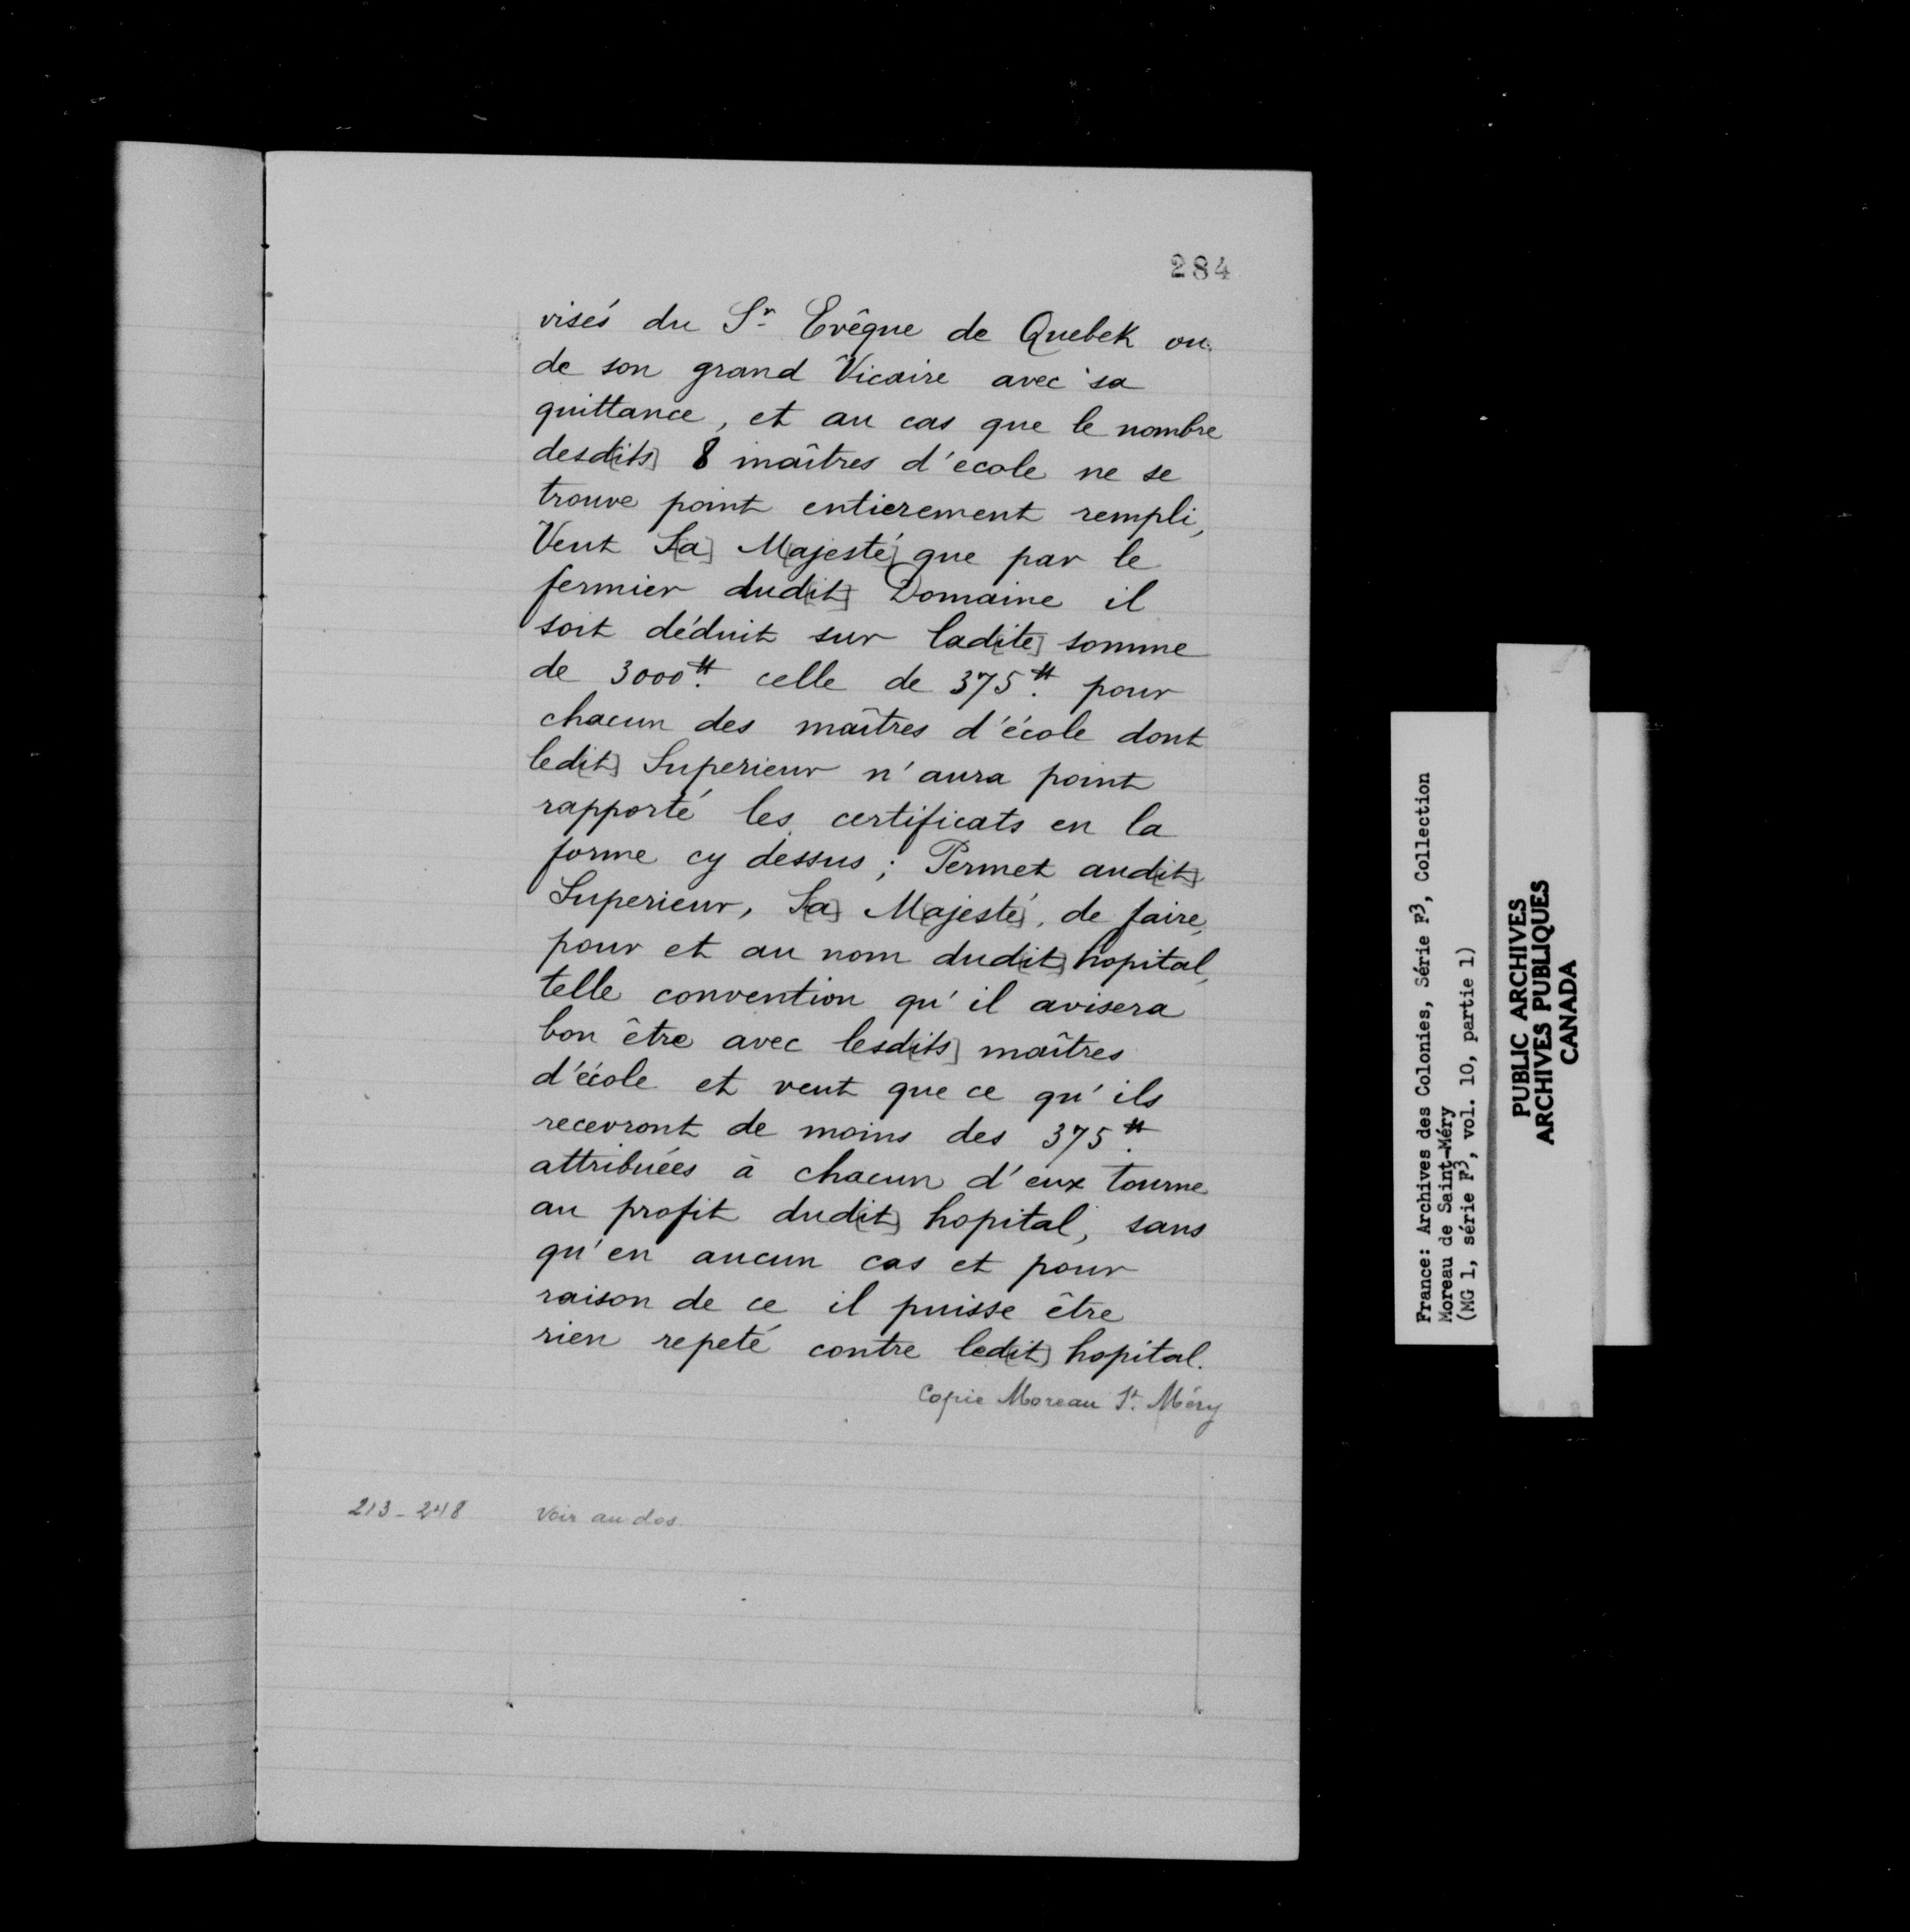 284
visés du Sr Evêque de Quebek ou
de son grand Vicaire avec sa
quittance, et au cas que le nombre
desd[its] 8 maîtres d'ecole ne se
trouve point entierement rempli,
Veut S[a] M[ajesté] que par le
fermier dud[it] Domaine il
soit déduit sur lad[ite] somme
de 3000tt celle de 375tt pour
chacun des maîtres d'école dont
led[it] Superieur n'aura point
rapporté les certificats en la
forme cy dessus ; Permet aud[it]
Superieur, S[a] M[ajesté], de faire,
pour et au nom dud[it] hopital,
telle convention qu'il avisera
bon être avec lesd[its] maîtres
d'école et veut que ce qu'ils
recevront de moins des 375tt
attribuées à chacun d'eux tourne
au profit dud[it] hopital, sans
qu'en aucun cas et pour
raison de ce il puisse être
rien repeté contre led[it] hopital.
Copie Moreau St. Méry
213-248 Voir au dos.
France: Archives des Colonies, Série F3, Collection
Moreau de Saint-Méry
(MG 1, série F3, vol. 10, partie 1)
PUBLIC ARCHIVES
ARCHIVES PUBLIQUES
CANADA